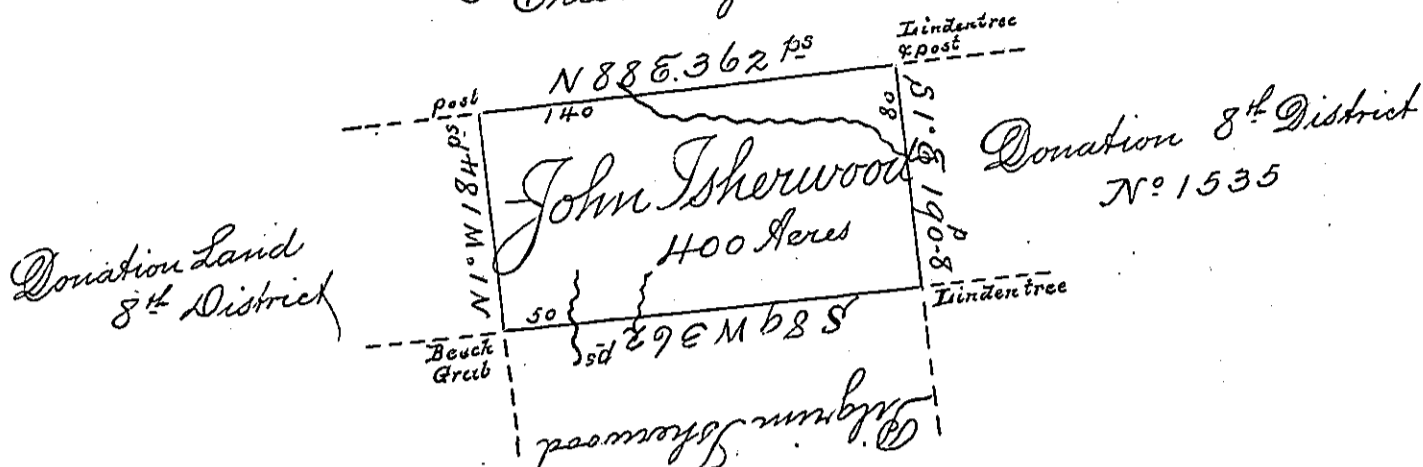 Lindentree
& post
N 88 E. 362 ps
post
140
80
S 1° E 190-8 p
N 1° W 184 ps
John Isherwood
400 Acres
Donation 8th District
No 1535
Donation Land
8th District
50
S 89 W 362 ps
Lindentree
Beech
Grub
Pilgrim Isherwood